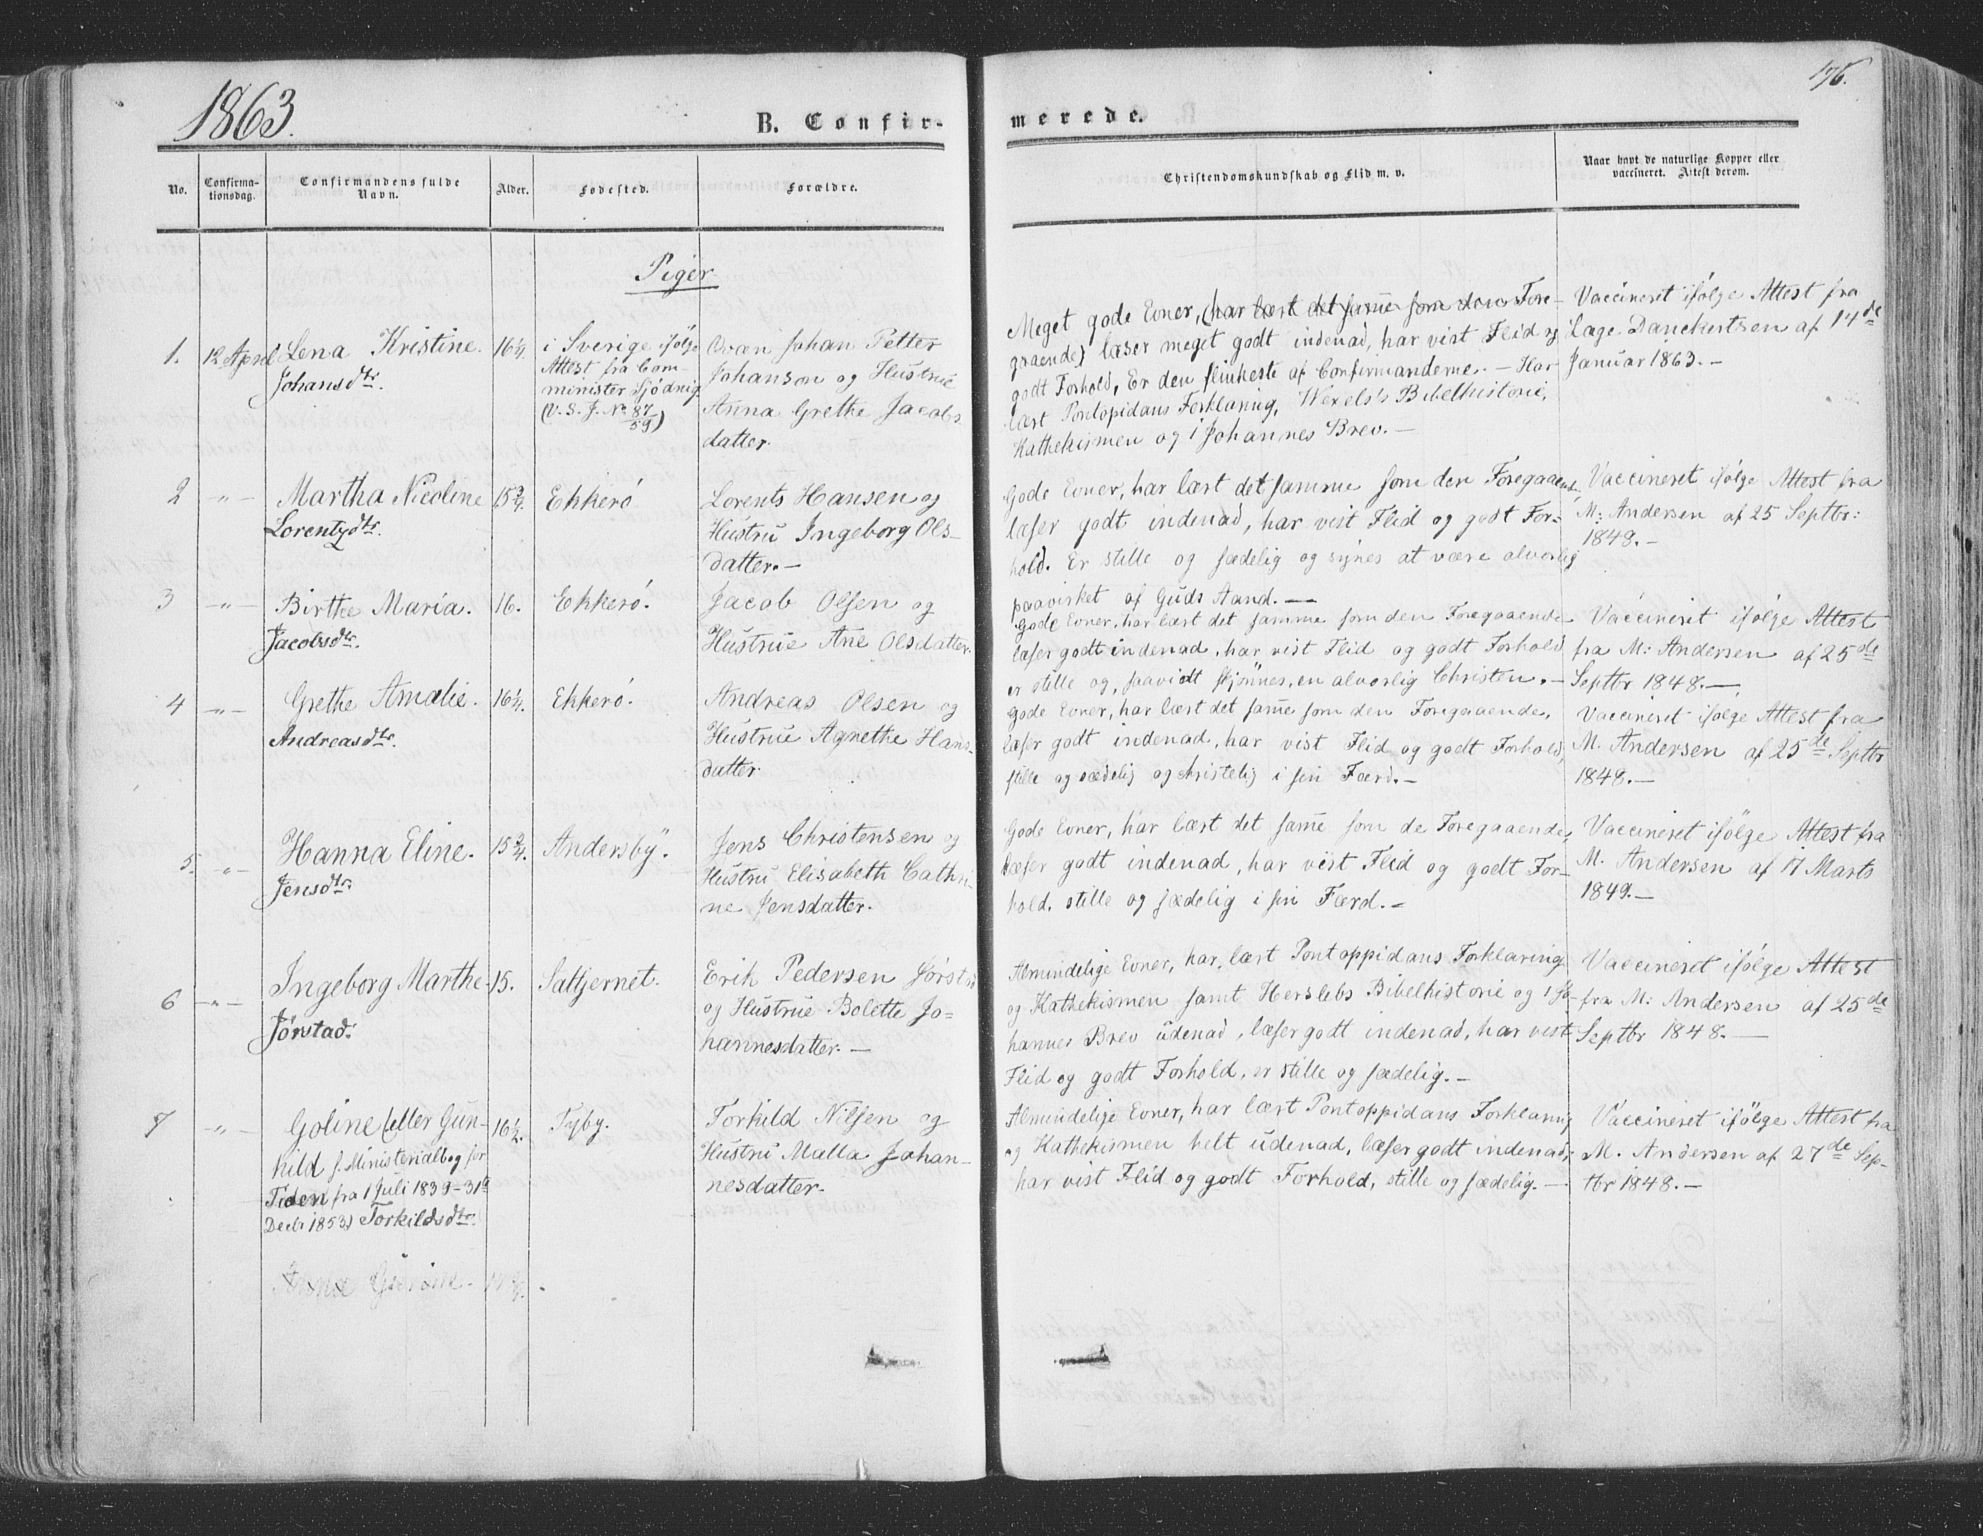 1863.
176.
B. Confir-
merede.
No.
Confirma-
tionsdag.
Confirmandens fulde
Navn.
Alder.
Fødested.
Forældre.
Christendomskundskab og Flid m. v.
Naar havt de naturlige Kopper eller
vaccineret. Attest derom.
Piger
1.
12 April
Lena Kristine.
Johansdtr.
16¼
i Sverige ifølge
Attest fra Com-
minister Sjödnig
(V. S. J. No 87/59)
Qvæn Johan Petter
Johanson og Hustrue
Anna Grethe Jacobs
datter.
Meget gode Evner, (har lært det samme som den Fore-
gaaende) læser meget godt indenad, har vist Flid og
godt Forhold, Er den flinkeste af Confirmanderne. - Har
lært Pontopidans Forklaring, Wexels's Bibelhistorie,
Kathekismen og 1 Johannes Brev. -
Vaccineret ifølge Attest fra
Læge Danckertsen af 14de
Januar 1863. -
2
-"-
Martha Nicoline
Lorentzdtr.
15¾
Ekkerö
Lorents Hansen og
Hustru Ingeborg Ols-
datter. -
Gode Evner, har lært det samme som den Foregaaende,
læser godt indenad, har vist Flid og godt For-
hold. Er stille og sædelig og synes at være alvorlig
paavirket af Guds Aand. -
Vaccineret ifølge Attest fra
M: Andersen af 25 Septbr:
1848. -
3
-"-
Birthe Maria.
Jacobsdtr.
16.
Ekkerö.
Jacob Olsen og
Hustrue Ane Olsdatter.
Gode Evner, har lært det samme som den Foregaaende
læser godt indenad, har vist Flid og godt Forhold,
er stille og, saavidt skjönnes, en alvorlig Christen. -
Vaccineret ifølge Attest
fra M: Andersen af 25de
Septbr 1848. -
4
-"-
Grethe Amalie.
Andreasdtr.
16¼.
Ekkerö.
Andreas Olsen og
Hustrue Agnethe Hans-
datter
Gode Evner, har lært det same som den Foregaaende,
læser godt indenad, har vist Flid og godt Forhold,
stille og sædelig og christelig i sin Færd. -
Vaccineret ifølge Attest fra
M. Andersen af 25de Septbr
1848. -
5.
-"-
Hanna Eline.
Jensdtr.
15¾.
Andersby.
Jens Christensen og
Hustru Elisabeth Cathri-
ne Jensdatter.
Gode Evner, har lært det same som de Foregaaende,
læser godt indenad, har vist Flid og godt For-
hold, stille og sædelig i sin Færd. -
Vaccineret ifølge Attest fra
M. Andersen af 17 Marts
1849. -
6
-"-
Ingeborg Marthe
Jørstad.
15.
Saltjernet.
Erik Pedersen Jørstad
og Hustrue Bolette Jo-
hannesdatter. -
Almindelige Evner, har lært Pontoppidans Forklaring
og Kathekismen samt Herslebs Bibelhistorie og 1 Jo-
hannes Brev udenad, læser godt indenad, har vist
Flid og godt Forhold, er stille og sædelig. -
Vaccineret ifølge Attest
fra M: Andersen af 25de
Septbr 1848. -
7
-"-
Goline (eller Gun-
hild f. Ministerialbog for
Tiden fra 1 Juli 1839-31te
Decbr 1853) Torkildsdtr.
16½.
Tyby.
Torkild Nilsen og
Hustru Malla Johan-
nesdatter.
Almindelige Evner, har lært Pontoppidans Forklaring
og Kathekismen helt udenad, læser godt indenad,
har vist Flid og godt Forhold, stille og sædelig. -
Vaccineret ifølge Attest fra
M. Andersen af 27de Sep-
tbr 1848. -